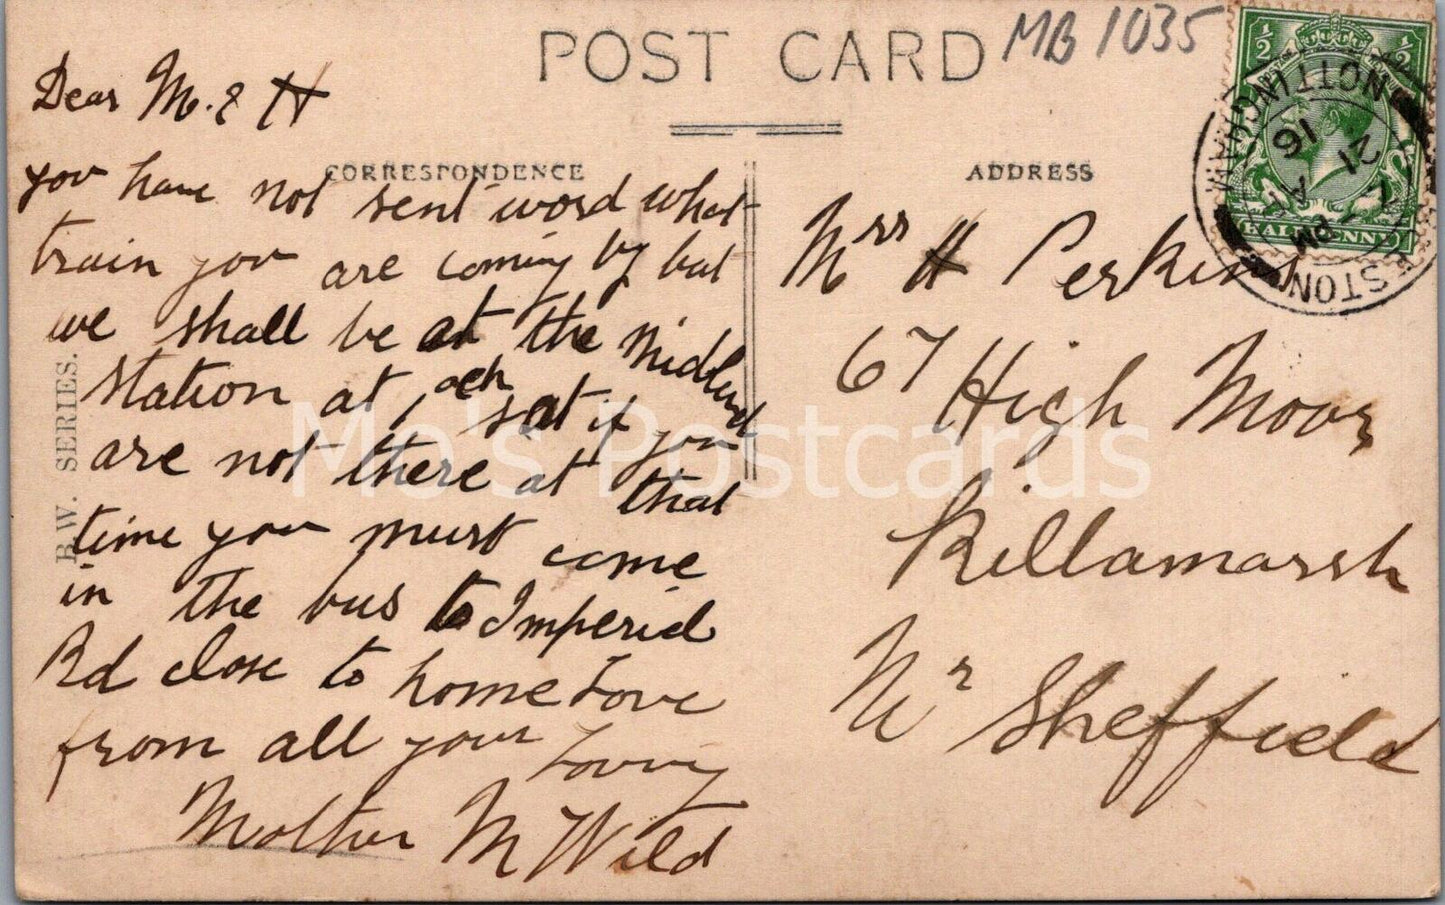 POST CARD
MB 1035
CORRESPONDENCE
ADDRESS
B.W. SERIES.
Dear M. & H
you have not sent word what
train you are coming by but
we shall be at the Midland
station at, sat if you
are not there at that
time you must come
in the bus to Imperial
Rd close to home Love
from all your Loving
Mother M Wild
Mrs H Perkins
67 High Moor
Killamarsh
Nr Sheffield
½ ½
HALFPENNY
NOTTINGHAM
PM
21
16
Mo's Postcards